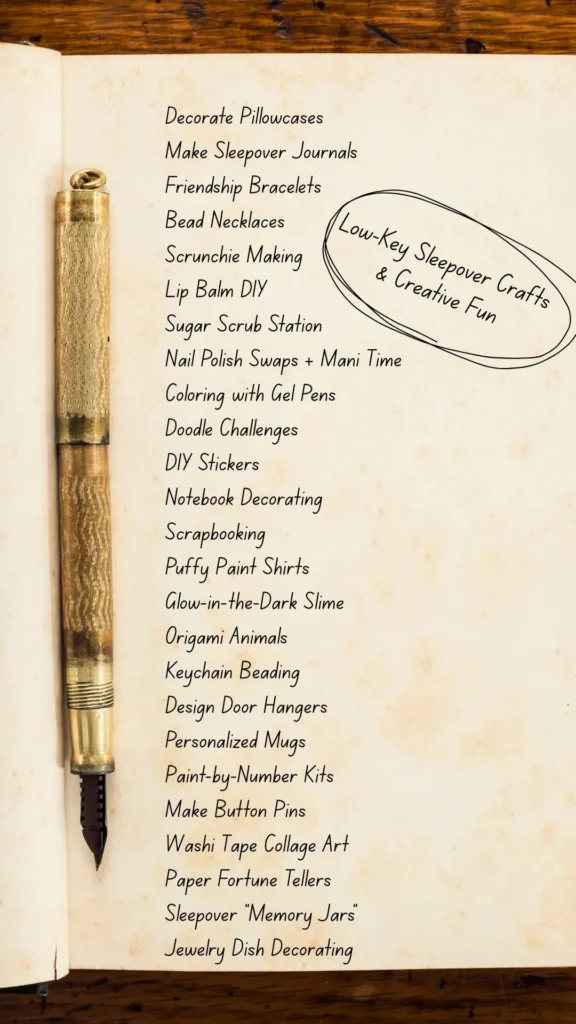 Decorate Pillowcases
Make Sleepover Journals
Friendship Bracelets
Bead Necklaces
Scrunchie Making
Lip Balm DIY
Sugar Scrub Station
Nail Polish Swaps + Mani Time
Coloring with Gel Pens
Doodle Challenges
DIY Stickers
Notebook Decorating
Scrapbooking
Puffy Paint Shirts
Glow-in-the-Dark Slime
Origami Animals
Keychain Beading
Design Door Hangers
Personalized Mugs
Paint-by-Number Kits
Make Button Pins
Washi Tape Collage Art
Paper Fortune Tellers
Sleepover "Memory Jars"
Jewelry Dish Decorating
Low-Key Sleepover Crafts
& Creative Fun